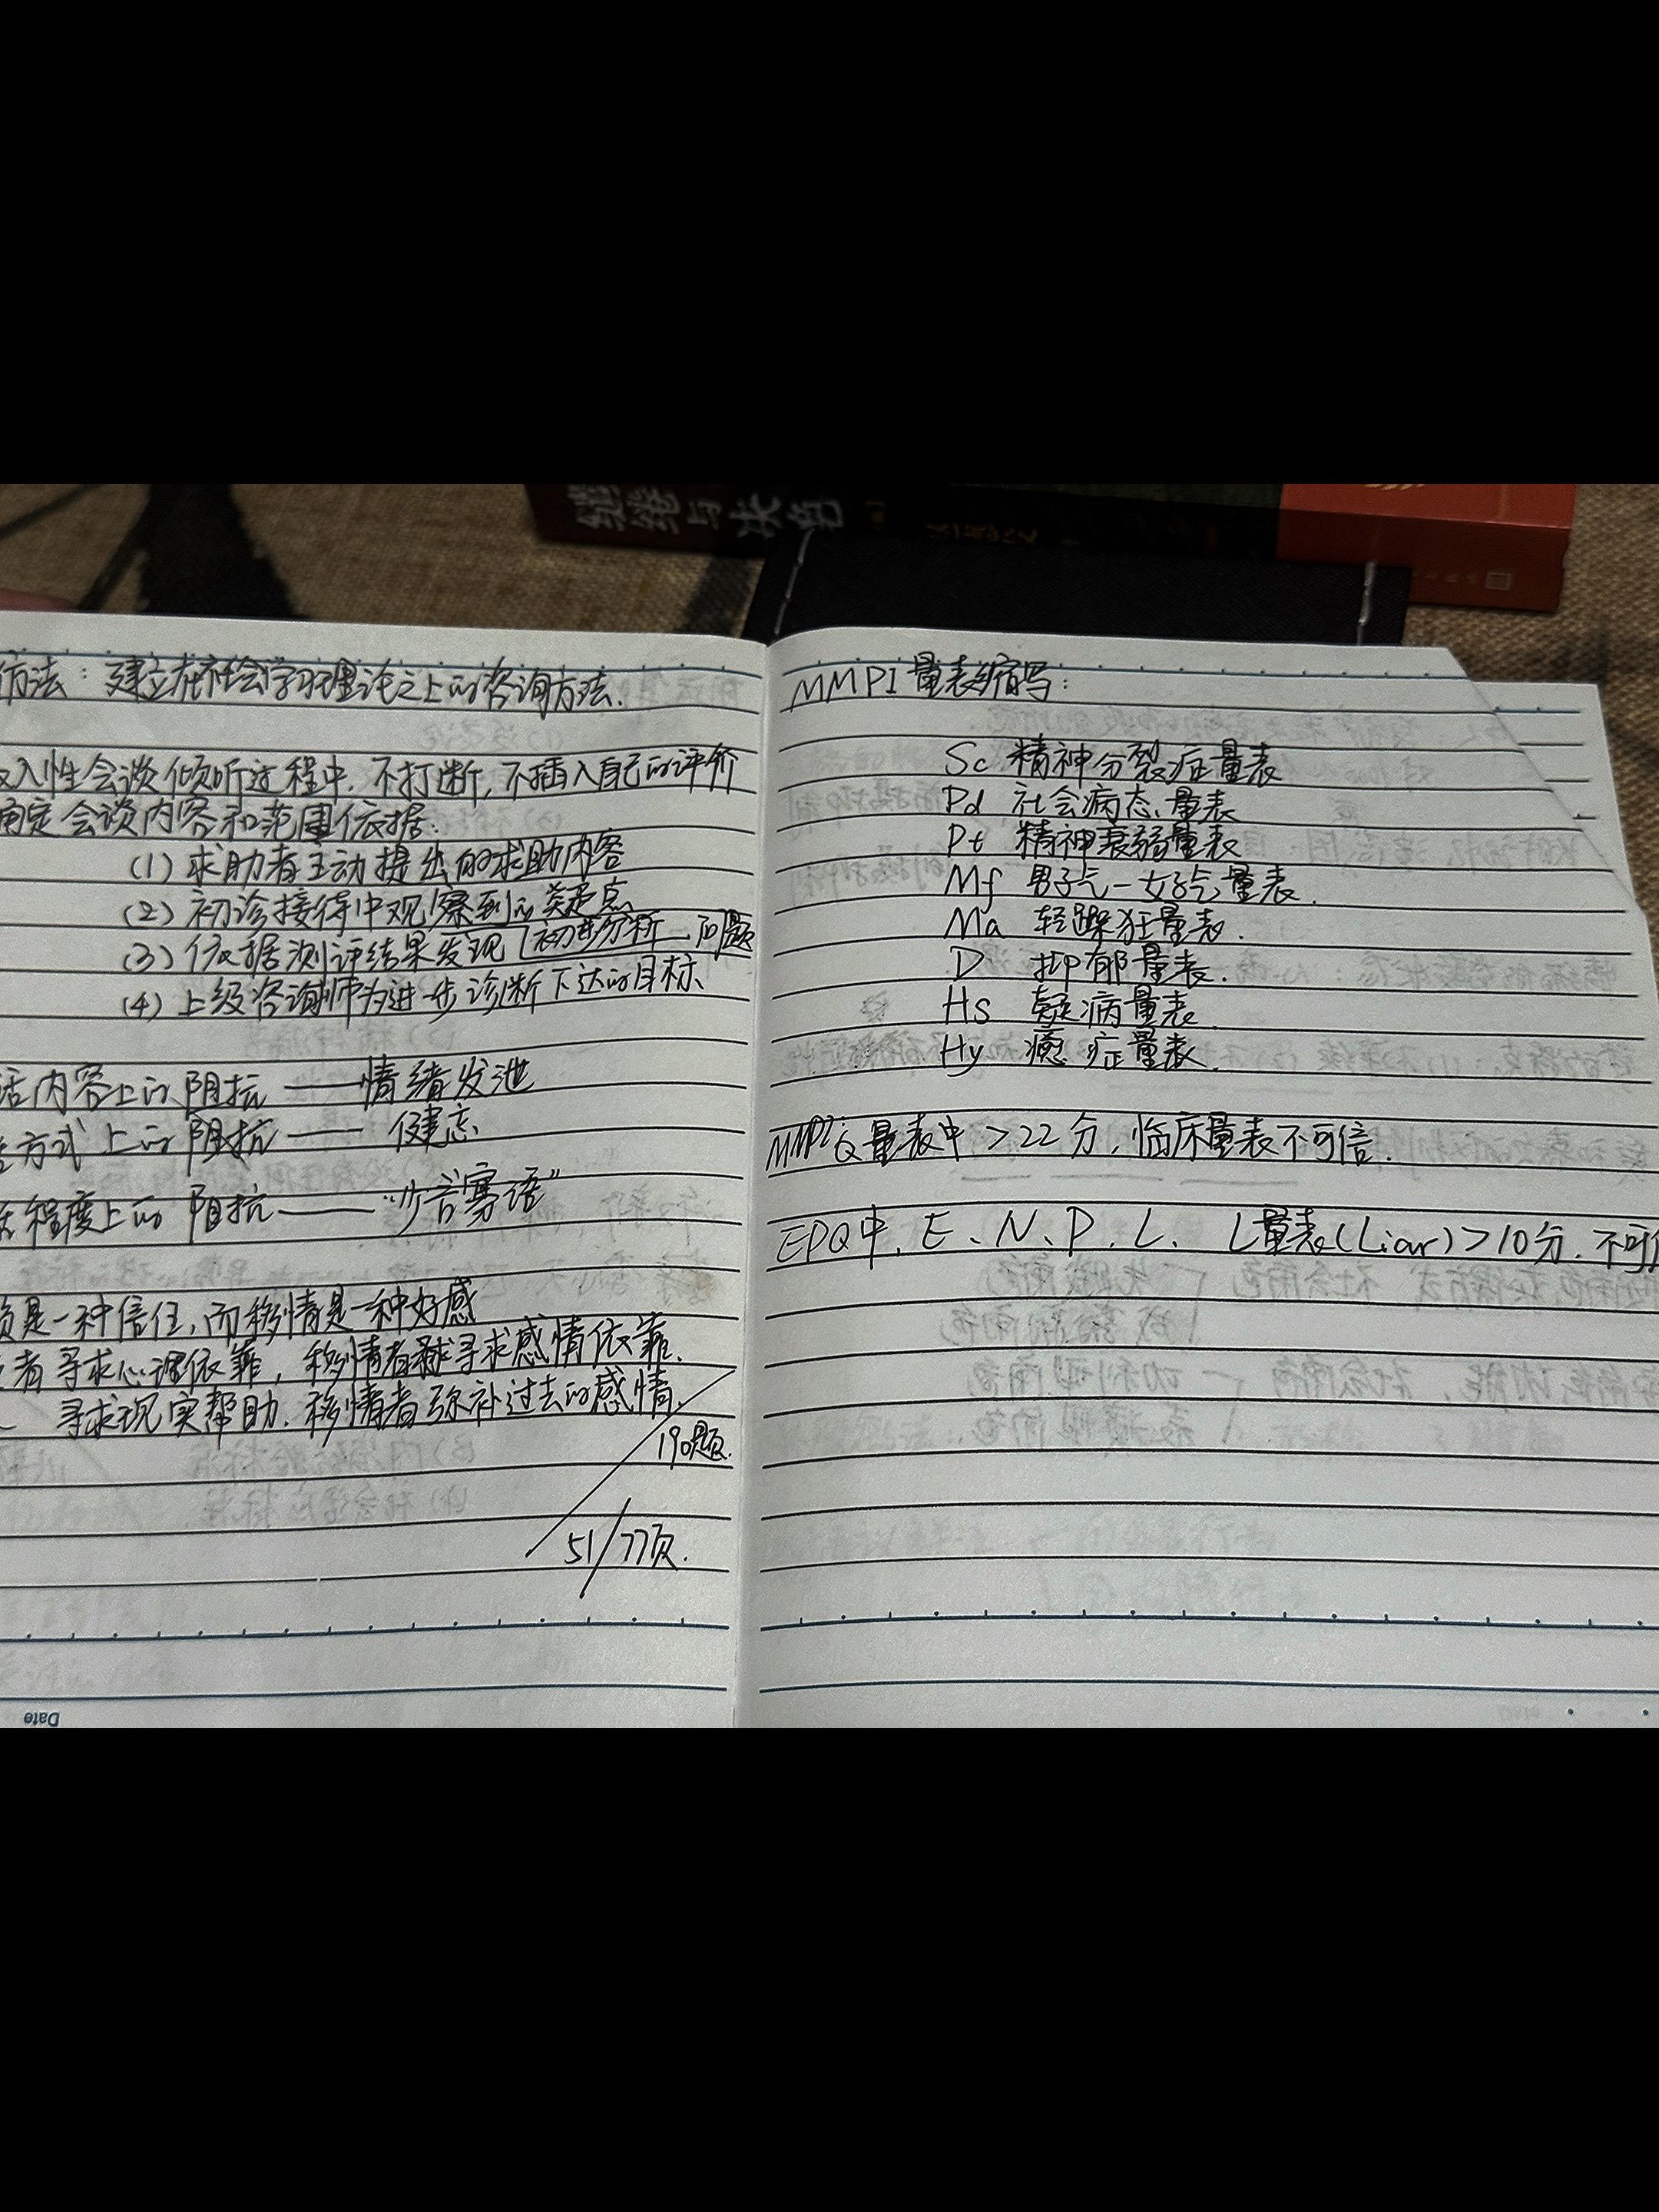 继续与失
方法：建立在社会学习理论之上的咨询方法.
入性会谈倾听过程中，不打断，不插入自己的评价
确定会谈内容和范围依据：
(1) 求助者主动提出的求助内容
(2) 初诊接待中观察到的疑点
(3) 依据测评结果发现 初步分析 问题
(4) 上级咨询师为进一步诊断下达的目标
话内容上的阻抗 —— 情绪发泄
方式上的阻抗 —— 健忘
程度上的阻抗 —— “少言寡语”
是一种信任，而移情是一种好感
者寻求心理依靠，移情者寻求感情依靠.
寻求现实帮助.移情者弥补过去的感情.
190题.
51/77页.
Date
MMPI量表缩写：
Sc 精神分裂症量表
Pd 社会病态量表
Pt 精神衰弱量表
Mf 男子气-女子气量表.
Ma 轻躁狂量表.
D 抑郁量表.
Hs 疑病量表.
Hy 癔症量表.
MMPI Q量表中>22分，临床量表不可信.
EPQ中，E、N、P、L、 L量表(Liar)>10分.不可